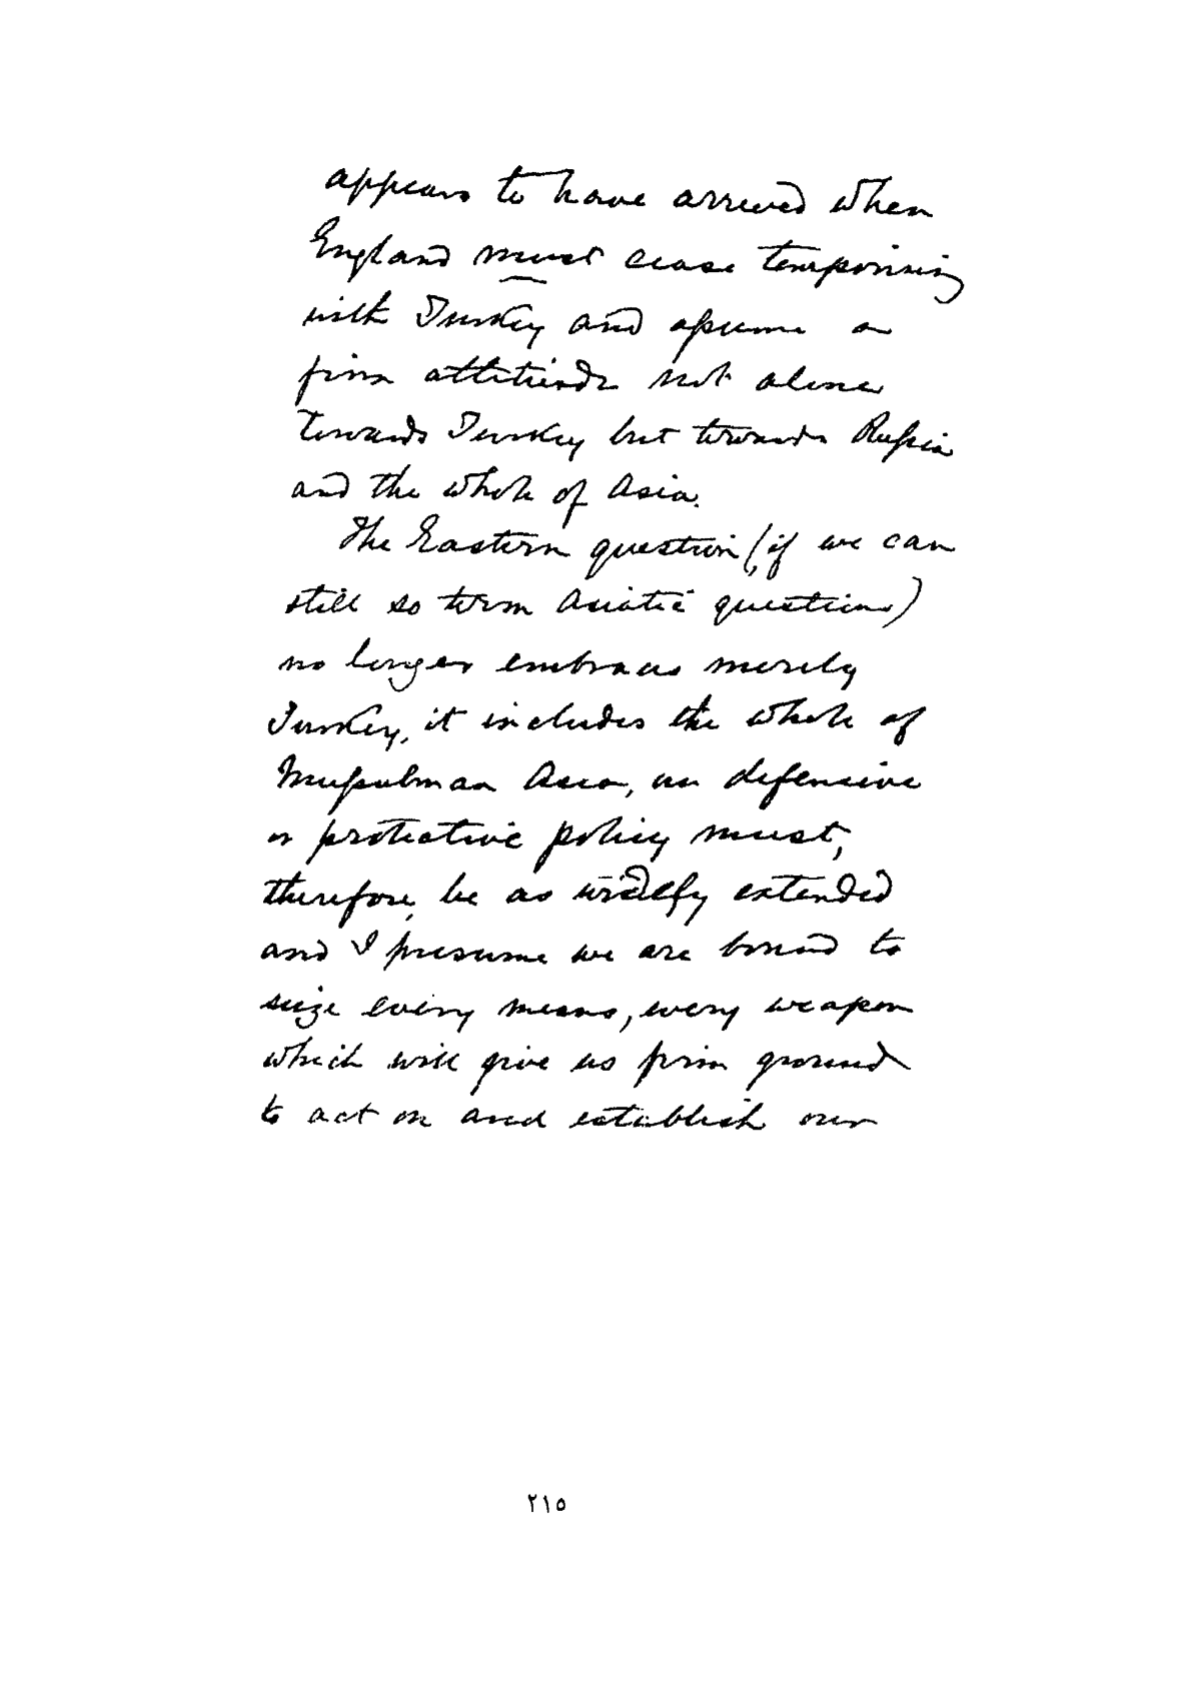 appears to have arrived when
England must cease temporising
with Turkey and assume a
firm attitude not alone
towards Turkey but towards Russia
and the whole of Asia.
The Eastern question (, if we can
still so term Asiatic questions)
no longer embraces merely
Turkey, it includes the whole of
Mussulman Asia, our defensive
or protective policy must,
therefore, be as widely extended
and I presume we are bound to
seize every means, every weapon
which will give us firm ground
to act on and establish our
٢١٥